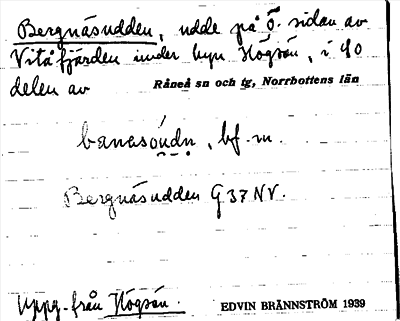 Bergnäsudden, udde på Ö sidan av
Vitåfjärden under byn Högsön, i SO
delen av Råneå sn och tg, Norrbottens län
bærnasoúdn, bf. m.
Bergnäsudden G 37 NV.
Uppg. från Högsön. EDVIN BRÄNNSTRÖM 1939